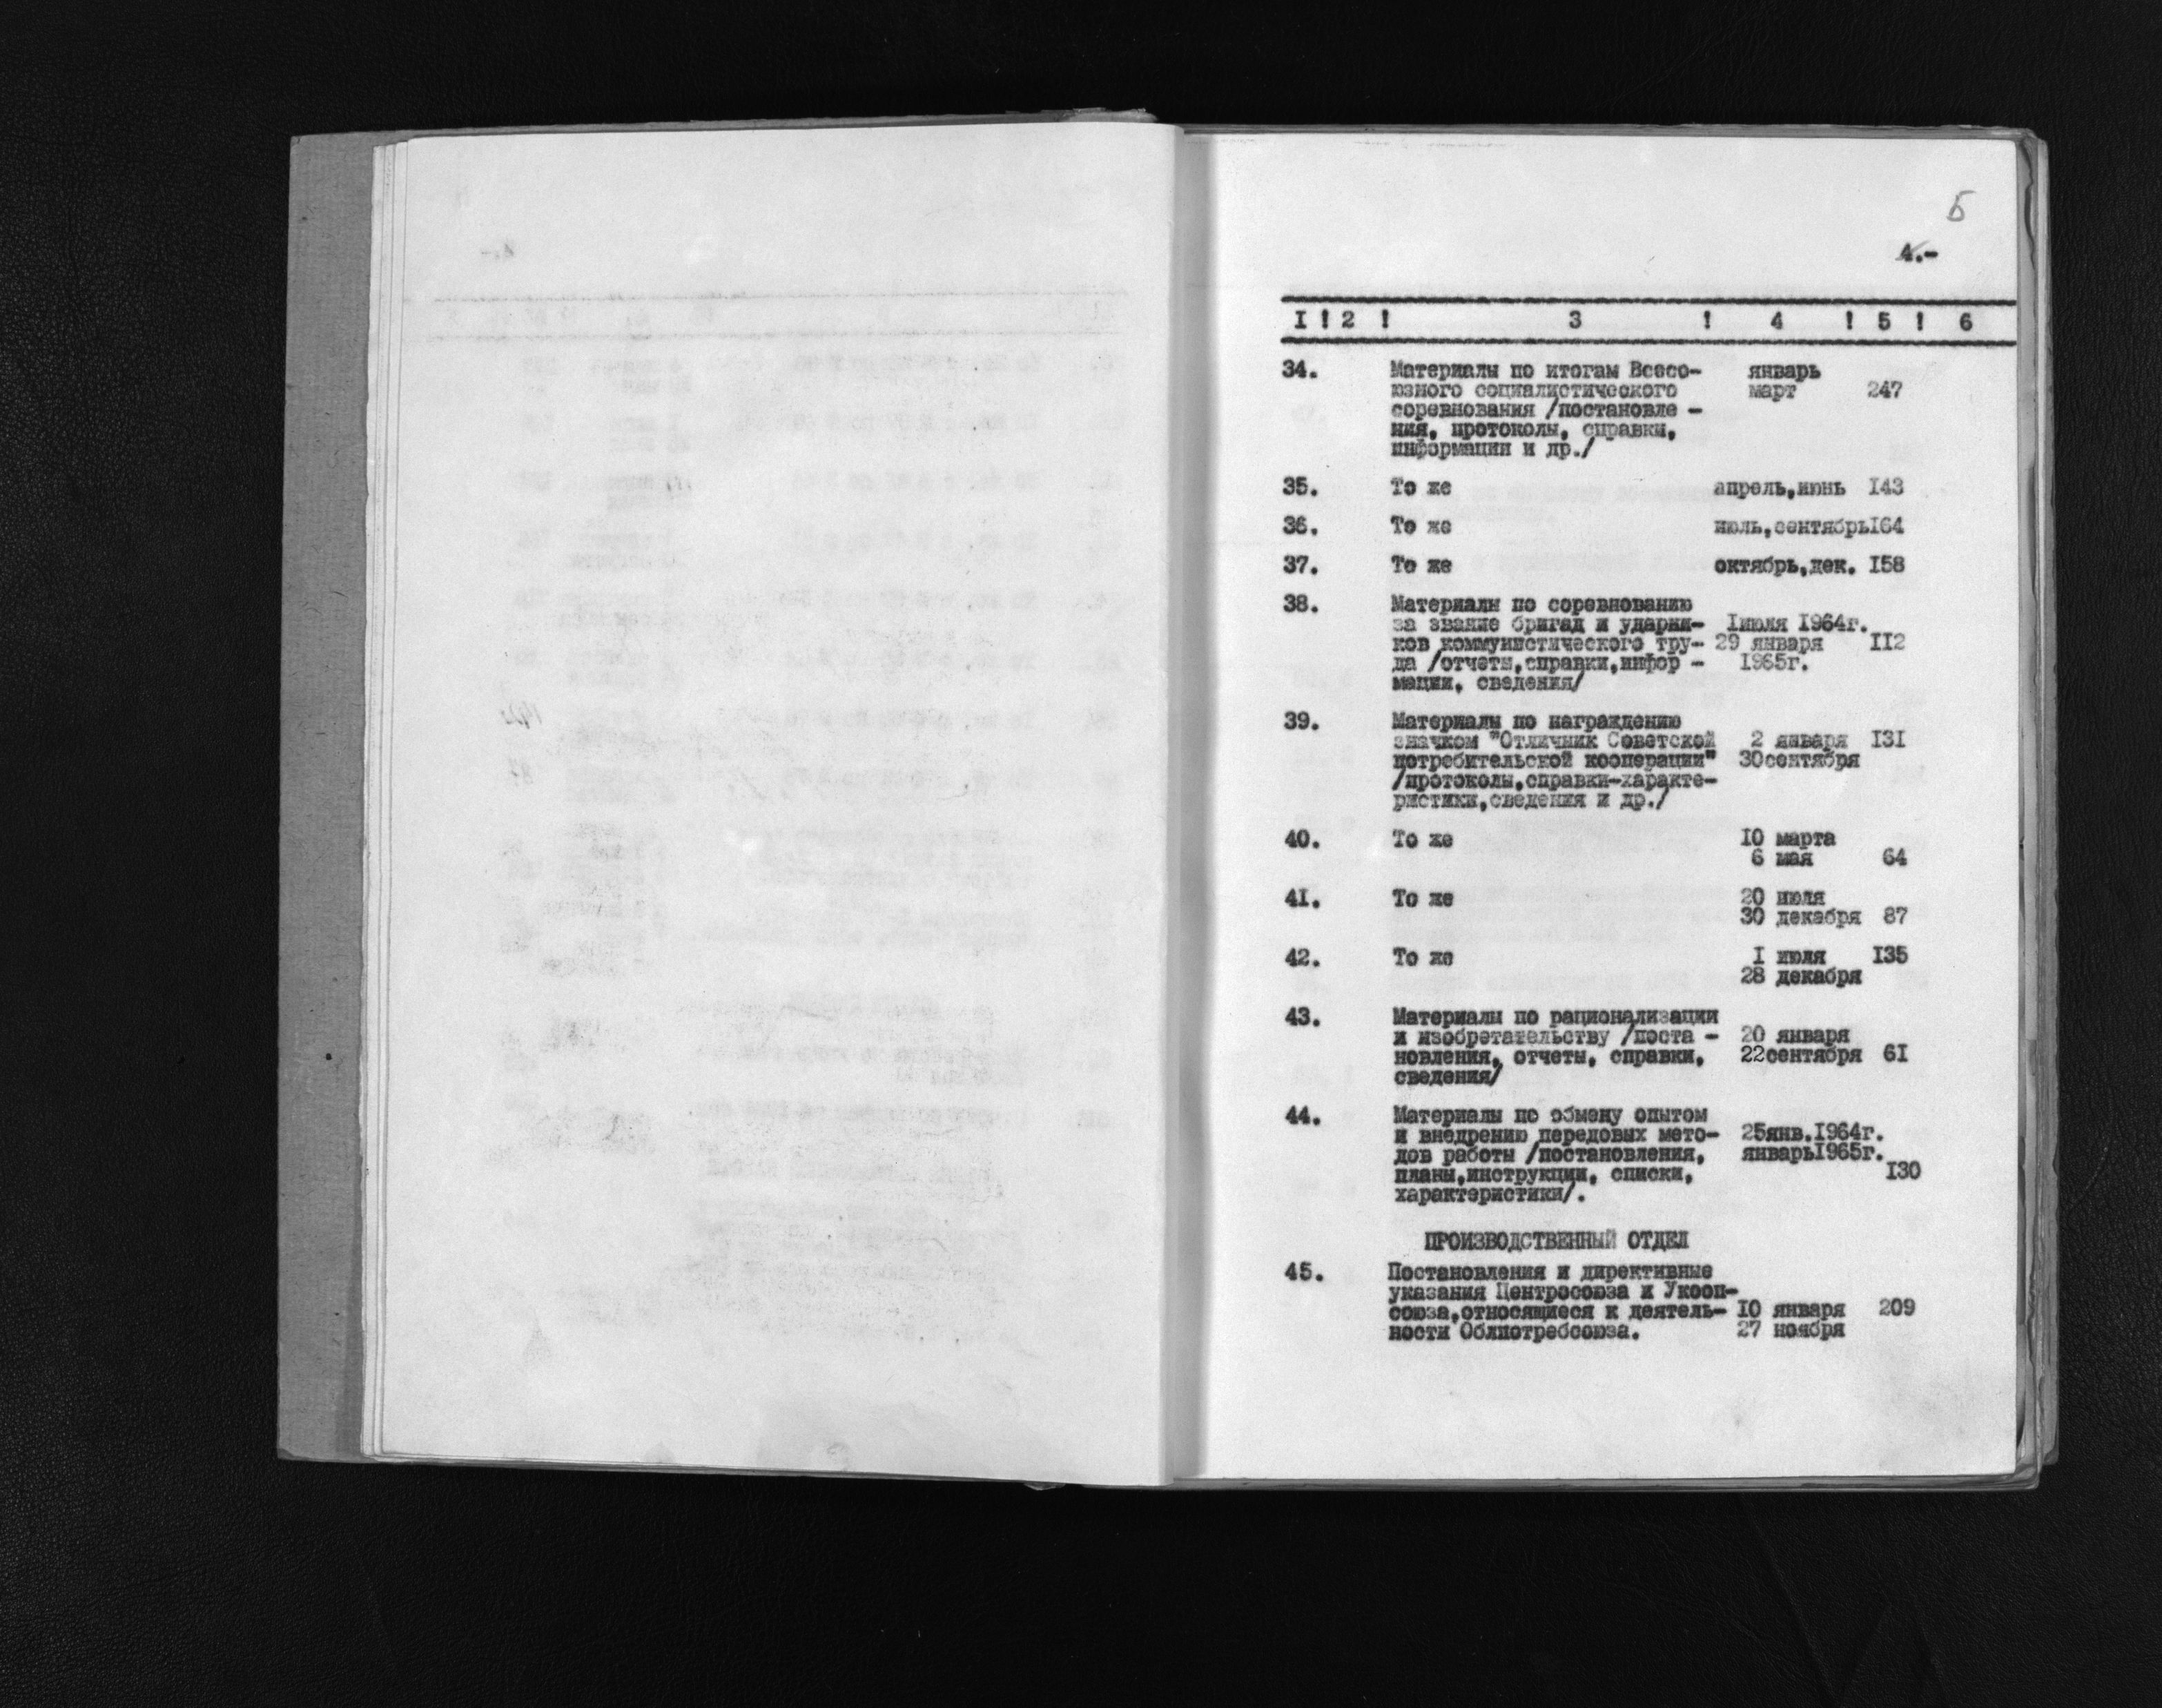 5
4.-
I ! 2 ! 3 ! 4 ! 5 ! 6
34. Материалы по итогам Всесо- январь
юзного социалистического март 247
соревнования /постановле -
ния, протоколы, справки,
информации и др./
35. То же апрель,июнь I43
36. То же июль,сентябрьI64
37. То же октябрь,дек. I58
38. Материалы по соревнованию
за звание бригад и ударни- Iиюля I964г.
ков коммунистического тру- 29 января II2
да /отчеты,справки,инфор - I965г.
мации, сведения/
39. Материалы по награждению
значком "Отличник Советской 2 января I3I
потребительской кооперации" 30сентября
/протоколы,справки-характе-
ристики,сведения и др./
40. То же IO марта
6 мая 64
4I. То же 20 июля
30 декабря 87
42. То же I июля I35
28 декабря
43. Материалы по рационализации
и изобретательству /поста - 20 января
новления, отчеты, справки, 22сентября 6I
сведения/
44. Материалы по обмену опытом
и внедрению передовых мето- 25янв.I964г.
дов работы /постановления, январьI965г.
планы,инструкции, списки, I30
характеристики/.
ПРОИЗВОДСТВЕННЫЙ ОТДЕЛ
45. Постановления и директивные
указания Центросоюза и Укооп-
союза,относящиеся к деятель- IO января 209
ности Облпотребсоюза. 27 ноября